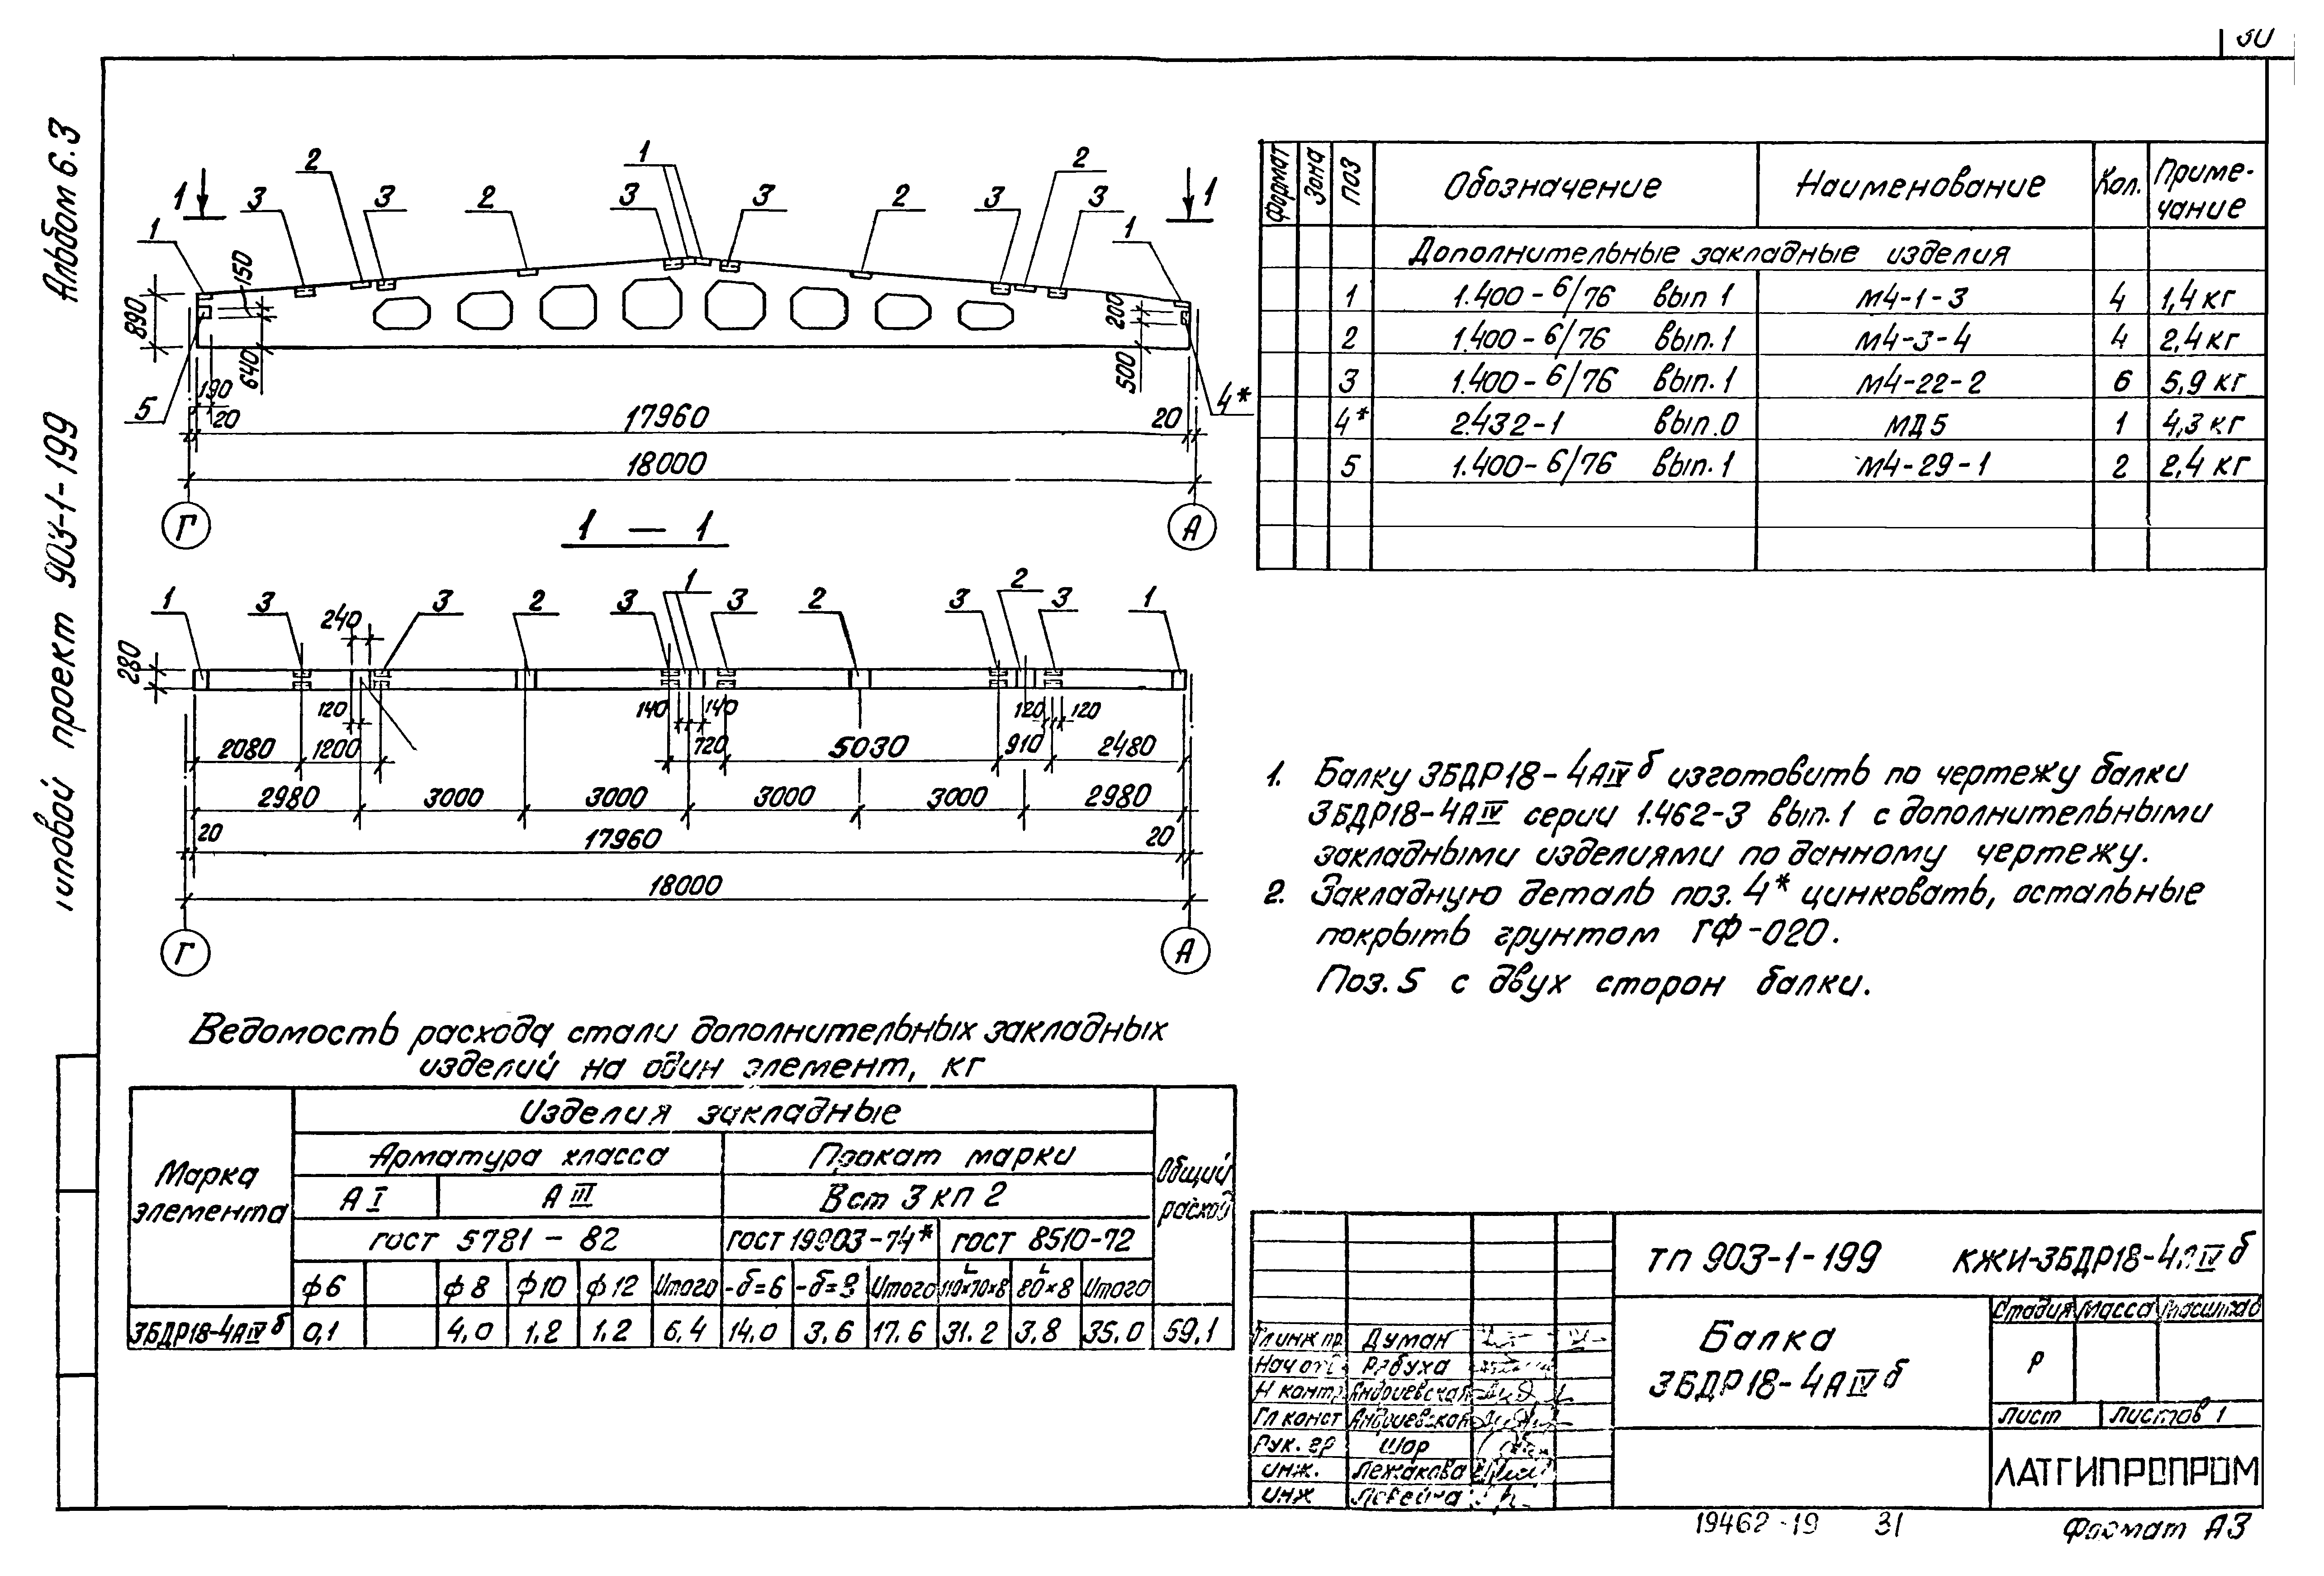 30
Альбом 6.3
Типовой проект 903-1-199
1 2 1 2 1
3 3 2 3 3 2 3 3
1 1
890 150 640 200 500
190 20 5 4*
17960 20
18000
Г А
1 — 1
1 3 3 2 3 1 3 2 3 2 3 1
240
280
120 140 140 120 120
2080 1200 720 5030 910 2480
2980 3000 3000 3000 3000 2980
20 17960 20
18000
Г А
Формат Зона Поз Обозначение Наименование Кол. Примечание
Дополнительные закладные изделия
1 1.400-6/76 вып 1 М4-1-3 4 1,4 кг
2 1.400-6/76 вып.1 М4-3-4 4 2,4 кг
3 1.400-6/76 вып.1 М4-22-2 6 5,9 кг
4* 2.432-1 вып.0 МД5 1 4,3 кг
5 1.400-6/76 вып.1 М4-29-1 2 2,4 кг
1. Балку 3БДР18-4АIV б изготовить по чертежу балки
3БДР18-4АIV серии 1.462-3 вып.1 с дополнительными
закладными изделиями по данному чертежу.
2. Закладную деталь поз. 4* цинковать, остальные
покрыть грунтом ГФ-020.
Поз. 5 с двух сторон балки.
Ведомость расхода стали дополнительных закладных
изделий на один элемент, кг
Марка элемента Изделия закладные Общий расход
Арматура класса Прокат марки
А I А III Вст 3 кп 2
ГОСТ 5781-82 ГОСТ 19903-74* ГОСТ 8510-72
ф6 ф8 ф10 ф12 Итого -δ=6 -δ=8 Итого L110×70×8 L80×8 Итого
3БДР18-4АIV б 0,1 4,0 1,2 1,2 6,4 14,0 3,6 17,6 31.2 3,8 35,0 59,1
ТП 903-1-199 КЖИ-3БДР18-4АIV б
Балка
3БДР18-4АIV б
Стадия Масса Масштаб
Р
Лист Листов 1
ЛАТГИПРОПРОМ
Гл инж пр. Думан
Нач отд Рябуха
Н контр. Андриевская
Гл конст Андриевская
Рук. гр Шор
инж. Лежакова
инж
19462-19 31 Формат А3